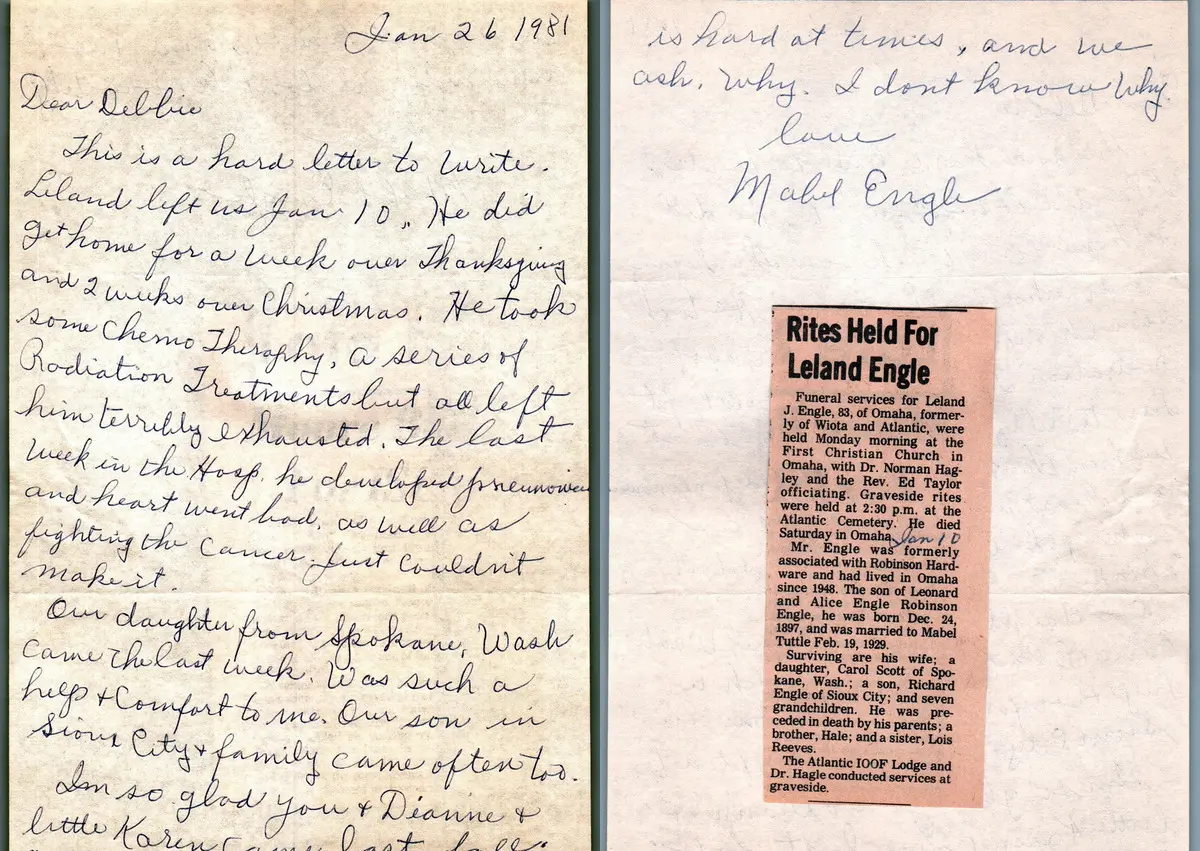 Jan 26 1981
Dear Debbie
This is a hard letter to write.
Leland left us Jan 10. He did
get home for a week over Thanksgiving
and 2 weeks over Christmas. He took
some Chemo Theraphy, a series of
Radiation Treatments but all left
him terribly exhausted. The last
week in the Hosp. he developed pneumonia
and heart went bad, as well as
fighting the cancer. Just couldn't
make it.
Our daughter from Spokane, Wash
came the last week. Was such a
help + Comfort to me. Our son in
Sioux City + family came often too.
Im so glad you + Dianne +
little Karen came last fall.
is hard at times, and we
ask, why. I dont know why.
love
Mabel Engle
Rites Held For
Leland Engle
Funeral services for Leland
J. Engle, 83, of Omaha, former-
ly of Wiota and Atlantic, were
held Monday morning at the
First Christian Church in
Omaha, with Dr. Norman Hag-
ley and the Rev. Ed Taylor
officiating. Graveside rites
were held at 2:30 p.m. at the
Atlantic Cemetery. He died
Saturday in Omaha. Jan 10
Mr. Engle was formerly
associated with Robinson Hard-
ware and had lived in Omaha
since 1948. The son of Leonard
and Alice Engle Robinson
Engle, he was born Dec. 24,
1897, and was married to Mabel
Tuttle Feb. 19, 1929.
Surviving are his wife; a
daughter, Carol Scott of Spo-
kane, Wash.; a son, Richard
Engle of Sioux City; and seven
grandchildren. He was pre-
ceded in death by his parents; a
brother, Hale; and a sister, Lois
Reeves.
The Atlantic IOOF Lodge and
Dr. Hagle conducted services at
graveside.